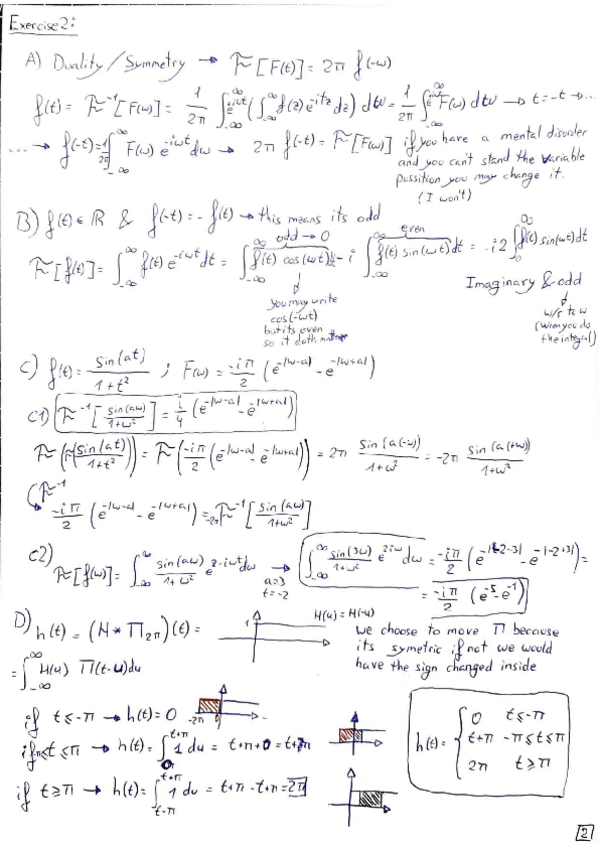 Exercise 2:
A) Duality/Symmetry → F[F(t)] = 2π f(-ω)
f(t) = F⁻¹[F(ω)] = 1/2π ∫_{-∞}^{∞} e^{iωt} (∫_{-∞}^{∞} f(z) e^{-itz} dz) dω = 1/2π ∫_{-∞}^{∞} e^{iωt} F(ω) dω → t = -t → ...
... → f(-t) = 1/2π ∫_{-∞}^{∞} F(ω) e^{-iωt} dω → 2π f(-t) = F[F(ω)]
if you have a mental disorder
and you can't stand the variable
possition you may change it.
(I won't)
B) f(t) ∈ ℝ & f(-t) = -f(t) → this means its odd
odd → 0
even
F[f(t)] = ∫_{-∞}^{∞} f(t) e^{-iωt} dt = ∫_{-∞}^{∞} f(t) cos(ωt) dt - i ∫_{-∞}^{∞} f(t) sin(ωt) dt = -i 2 ∫_{0}^{∞} f(t) sin(ωt) dt
you may write
cos(-ωt)
but its even
so it doth matter
Imaginary & odd
w/r to ω
(when you do
the integral)
C) f(t) = sin(at)/1+t² ; F(ω) = -iπ/2 (e^{-|ω-a|} - e^{-|ω+a|})
C1) F⁻¹[sin(aω)/1+ω²] = i/4 (e^{-|ω-a|} - e^{-|ω+a|})
F(F(sin(at)/1+t²)) = F(-iπ/2 (e^{-|ω-a|} - e^{-|ω+a|})) = 2π sin(a(-ω))/1+ω² = -2π sin(a(+ω))/1+ω²
F⁻¹
-iπ/2 (e^{-|ω-a|} - e^{-|ω+a|}) = -2π F⁻¹[sin(aω)/1+ω²]
C2)
F[f(ω)] = ∫_{-∞}^{∞} sin(aω)/1+ω² e^{-iωt} dω → a=3 t=-2 ∫_{-∞}^{∞} sin(3ω)/1+ω² e^{2iω} dω = -iπ/2 (e^{-|-2-3|} - e^{-|-2+3|}) =
= -iπ/2 (e^{-5} - e^{-1})
D) h(t) = (H * Π_{2π})(t) =
1
H(u) = H(-u)
we choose to move Π because
its symetric if not we would
have the sign changed inside
= ∫_{-∞}^{∞} H(u) Π(t-u) du
if t ≤ -π → h(t) = 0
-2π 0
if -π ≤ t ≤ π → h(t) = ∫_{0}^{t+π} 1 du = t+π+0 = t+π
if t ≥ π → h(t) = ∫_{t-π}^{t+π} 1 du = t+π-t+π = 2π
h(t) = { 0 t ≤ -π
t+π -π ≤ t ≤ π
2π t ≥ π
2